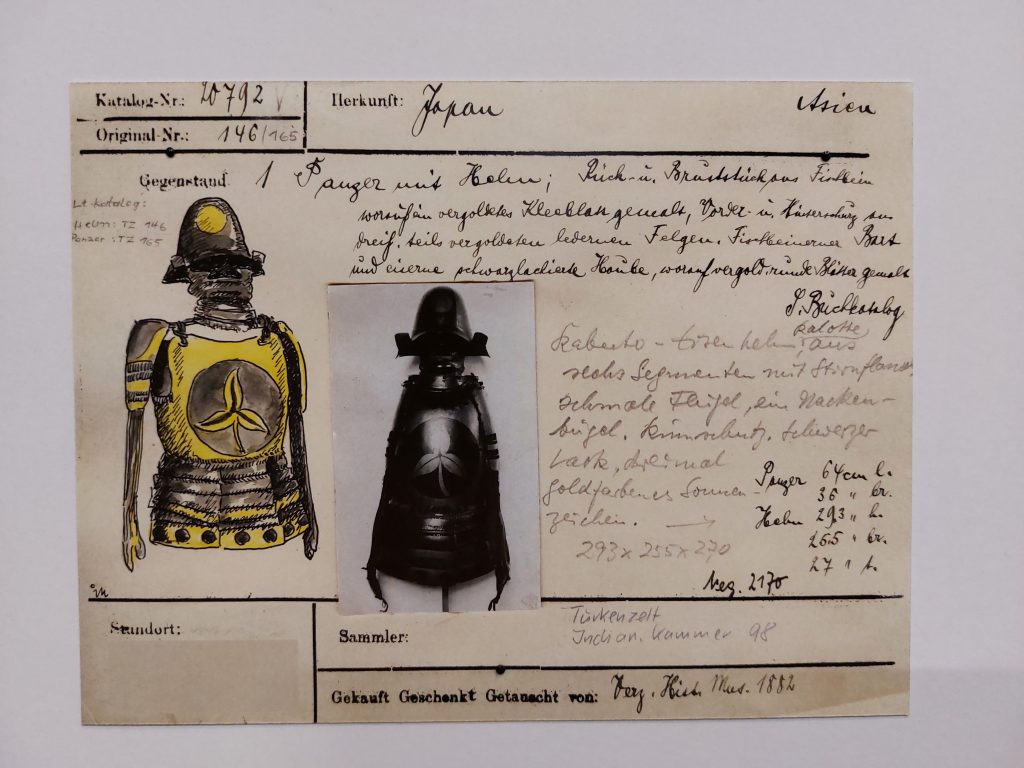 Katalog-Nr.: 20792
Herkunft: Japan Asien
Original-Nr.: 146/165
Gegenstand 1 Panzer mit Helm; Rück- u. Bruststück aus Fischbein
worauf ein vergoldetes Kleeblatt gemalt, Vorder- u. Hinterschurz aus
dreif. teils vergoldeten ledernen Felgen. Fischbeinerner Bart
und eiserne schwarzlackierte Haube, worauf vergold. runde Blätter gemalt
S. Buchkatalog
Lt. Katalog:
Helm: TZ 146
Panzer: TZ 165
Kalotte
Kabuto - Eisenhelm, aus
sechs Segmenten mit
schmale Flügel, ein Nacken-
bügel. Kinnschutz. Schwarzer
Lack, dreimal
goldfarbenes Sonnen-
zeichen.
293 x 255 x 270
Panzer 64 cm l.
36 " br.
Helm 29,3 " h.
25.5 " br.
27 " t.
Neg. 2170
Standort:
Sammler:
Türkenzelt
Indian. Kammer 98
Gekauft Geschenkt Getauscht von: Verz. Hist. Mus. 1882